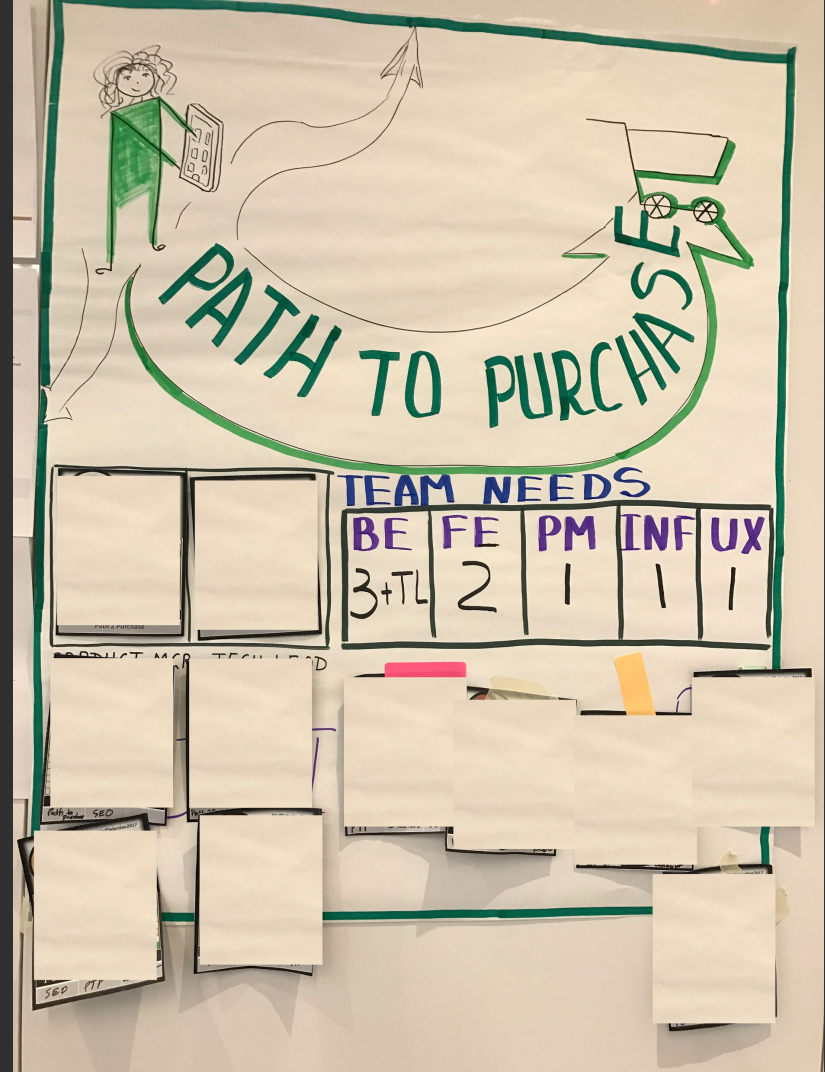 PATH TO PURCHASE
TEAM NEEDS
BE FE PM INF UX
3+TL 2 1 1 1
Path 2 Purchase
PRODUCT MGR TECH LEAD
Path to purchase SEO
SEO PTP